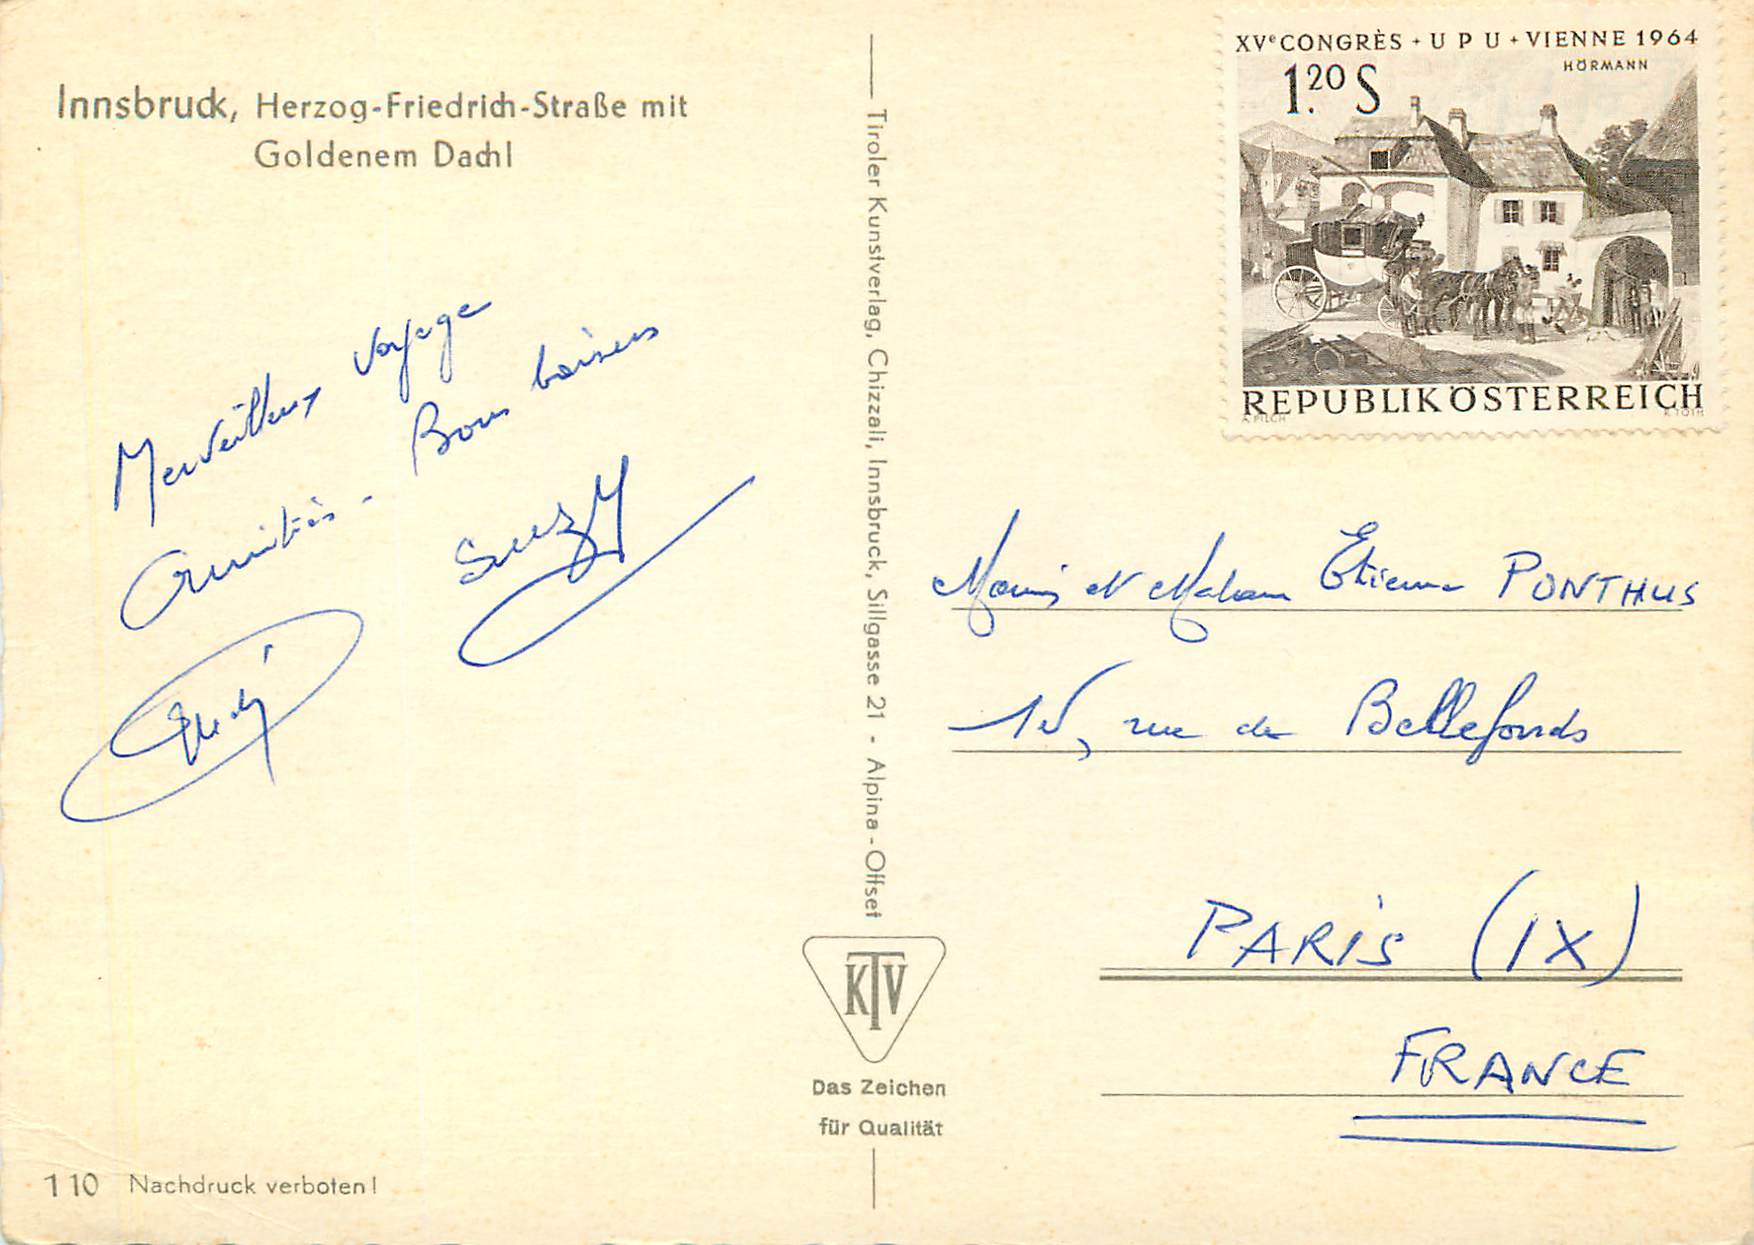 Innsbruck, Herzog-Friedrich-Straße mit
Goldenem Dachl
Merveilleux voyage
Amitiés - Bons baisers
Suzy
Tiroler Kunstverlag, Chizzali, Innsbruck, Sillgasse 21 - Alpina-Offset
KTV
Das Zeichen
für Qualität
110 Nachdruck verboten!
XVe CONGRÈS + U P U + VIENNE 1964
HÖRMANN
1.20 S
REPUBLIK ÖSTERREICH
A. PILCH K. TOTH
et Madame Étienne PONTHUS
15, rue de Bellefonds
PARIS (IX)
FRANCE